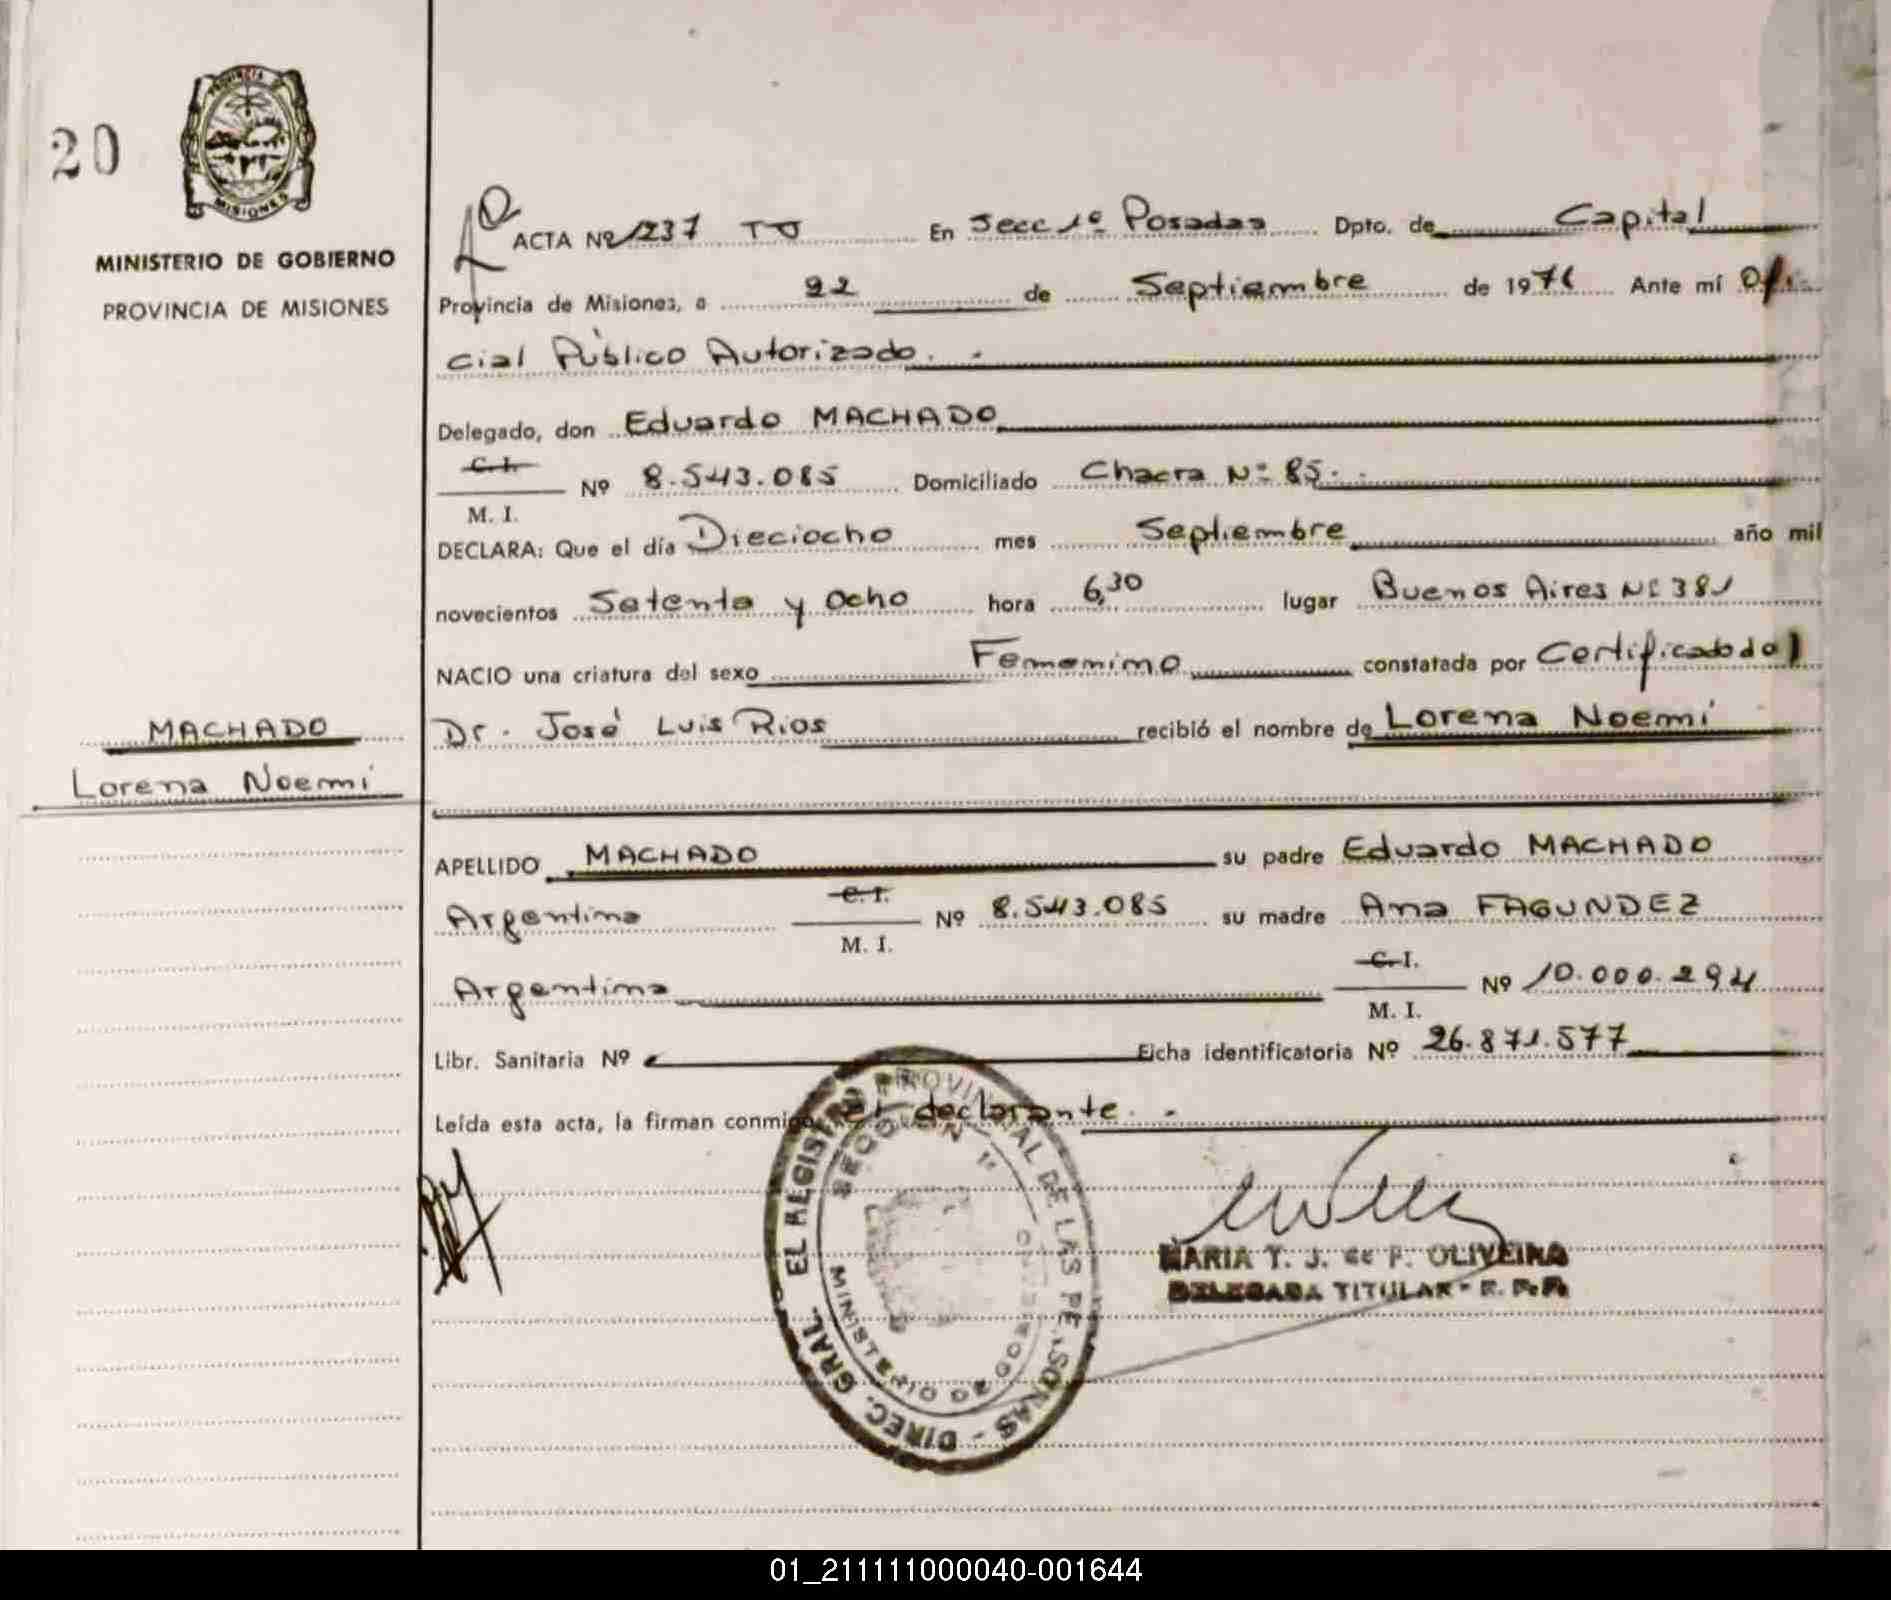 20
MINISTERIO DE GOBIERNO
PROVINCIA DE MISIONES
ACTA Nº 1237 TO En Secc 1º Posadas Dpto. de Capital
Provincia de Misiones, a 22 de Septiembre de 197 Ante mí Ofi-
cial Público Autorizado.
Delegado, don Eduardo MACHADO
C.I.
M. I. Nº 8.543.085 Domiciliado Chacra Nº 85.
DECLARA: Que el día Dieciocho mes Septiembre año mil
novecientos Setenta y Ocho hora 6,30 lugar Buenos Aires Nº 381
NACIO una criatura del sexo Femenino constatada por Certificado del
MACHADO
Lorena Noemí
Dr. José Luis Rios recibió el nombre de Lorena Noemí
APELLIDO MACHADO su padre Eduardo MACHADO
Argentino C.I. M. I. Nº 8.543.085 su madre Ana FAGUNDEZ
Argentina C.I. M. I. Nº 10.000.294
Libr. Sanitaria Nº Ficha identificatoria Nº 26.871.577
Leída esta acta, la firman conmigo el declarante.
DIREC. GRAL. EL REGISTRO PROVINCIAL DE LAS PERSONAS
SECCION 1ª
MINISTERIO DE GOB
MARIA T. J. de P. OLIVEIRA
DELEGADA TITULAR - R. P. P.
01_211111000040-001644